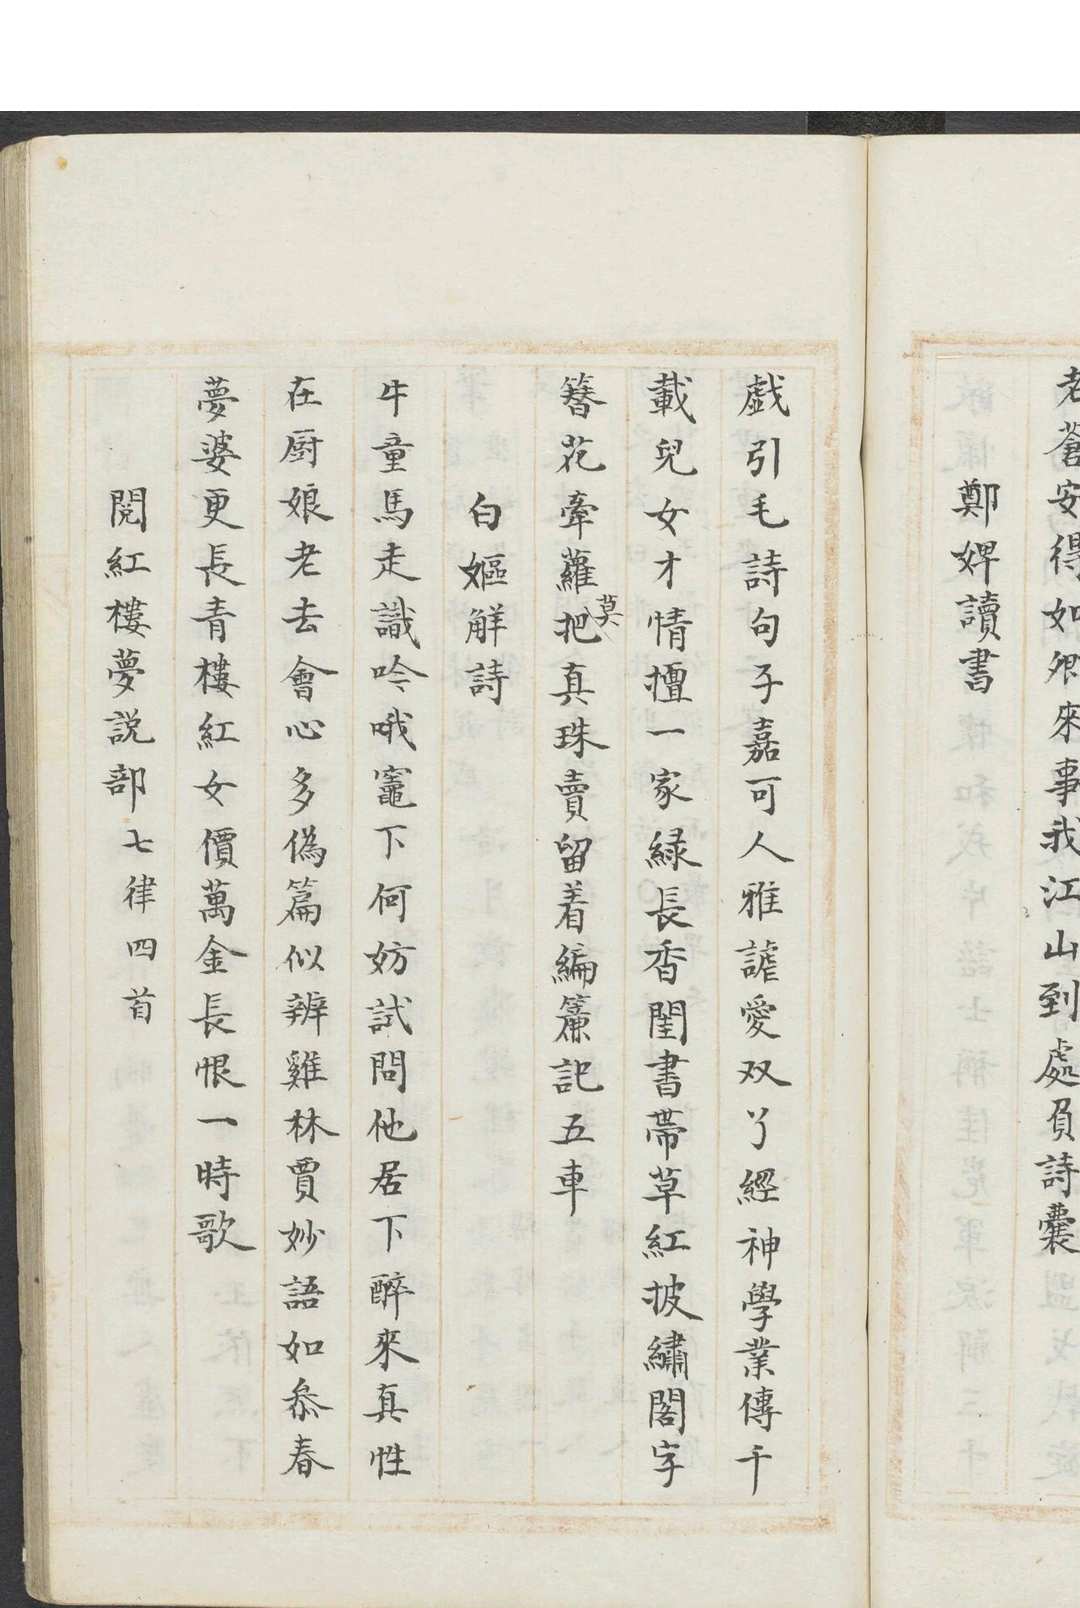 老蒼安得如卿來事我江山到處負詩囊
鄭婢讀書
戯引毛詩句子嘉可人雅謔愛双丫經神學業傳千
載兒女才情擅一家綠長香閨書帶草紅披繡閣字
簪花牽蘿把真珠賣留着編簾記五車
莫
白嫗解詩
牛童馬走識吟哦竈下何妨試問他居下醉來真性
在厨娘老去會心多偽篇似辨雞林賈妙語如叅春
夢婆更長青樓紅女價萬金長恨一時歌
閱紅樓夢説部七律四首